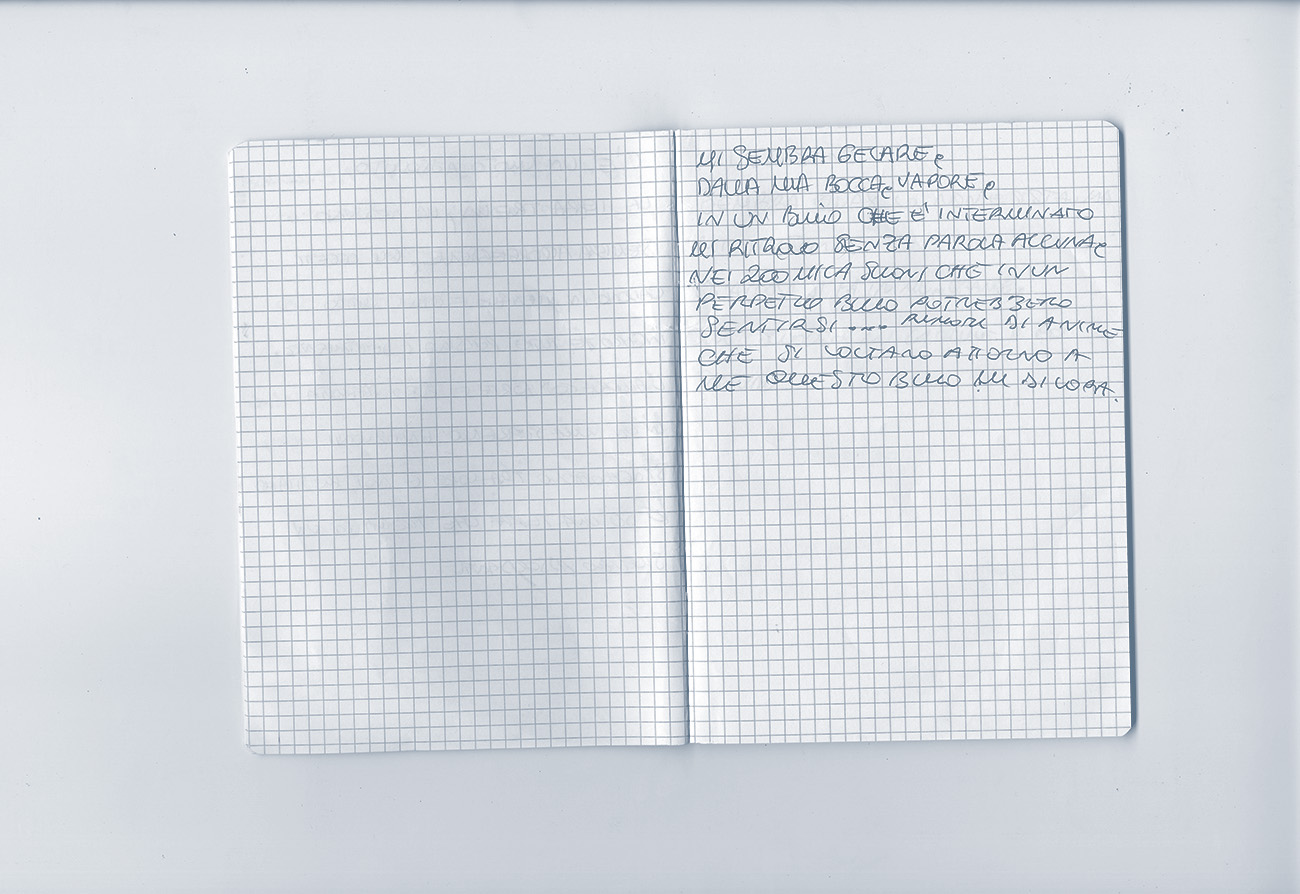 MI SEMBRA GELARE,
DALLA MIA BOCCA, VAPORE,
IN UN BUIO CHE E' INTERMINATO
MI RITROVO SENZA PAROLA ALCUNA,
NEI 200 MILA SUONI CHE IN UN
PERPETUO BUIO POTREBBERO
SENTIRSI .... RUMORI DI ANIME
CHE SI VOLTANO ATTORNO A
ME QUESTO BUIO MI DIVORA.